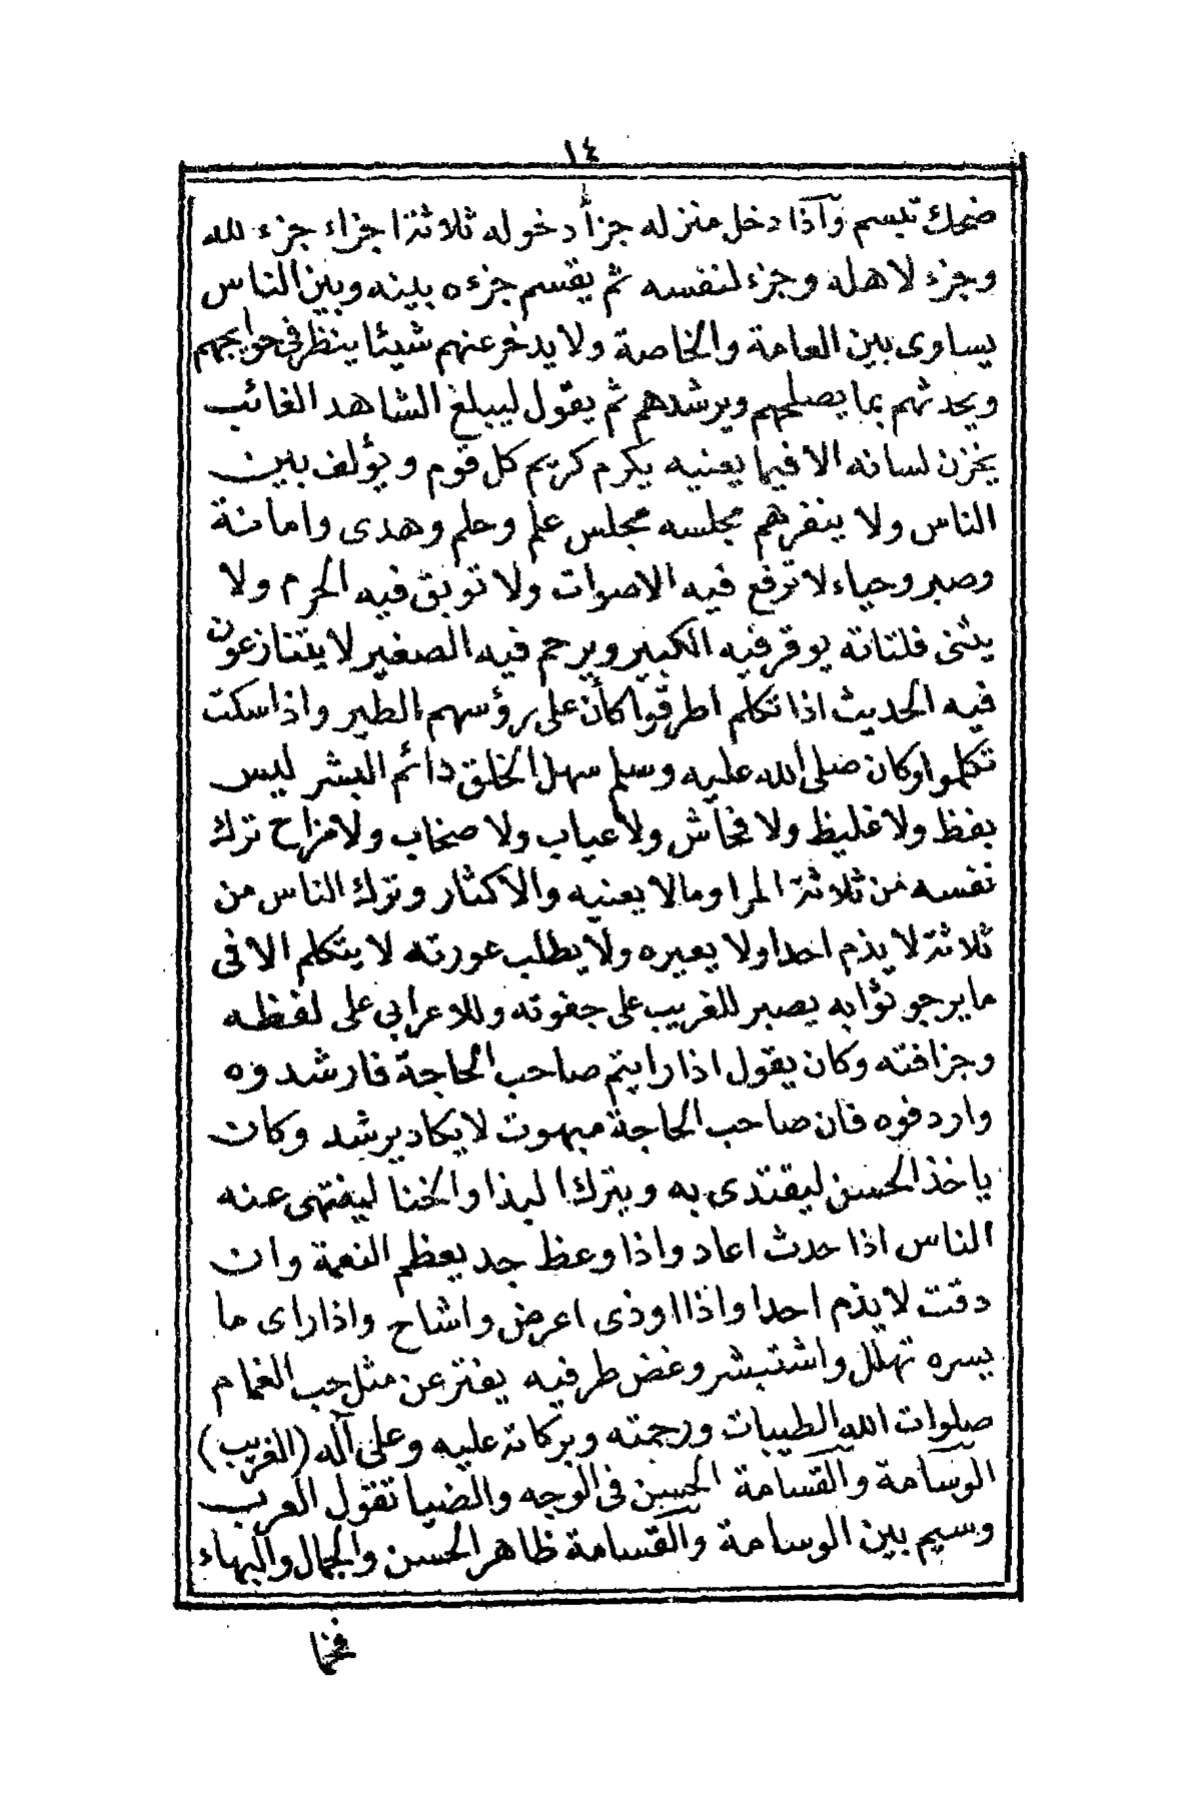 ١٤
ضحك تبسم وآذا دخل منزله جزأ دخوله ثلاثة اجزاء جزء لله
وجزء لاهله وجزء لنفسه ثم يقسم جزءه بينه وبين الناس
يساوى بين العامة والخاصة ولا يدخر عنهم شيئا ينظر فى حوايجهم
ويحدثهم بما يصلحهم ويرشدهم ثم يقول ليبلغ الشاهد الغائب
يخزن لسانه الا فيما يعنيه يكرم كريم كل قوم ويؤلف بين
الناس ولا ينفرهم مجلسه مجلس علم وحلم وهدى وامانة
وصبر وحياء لا ترفع فيه الاصوات ولا توبق فيه الحرم ولا
يثنى فلتاته يوقر فيه الكبير ويرحم فيه الصغير لا يتنازعون
فيه الحديث اذا تكلم اطرقوا كأن على رؤسهم الطير واذا سكت
تكلموا وكان صلى الله عليه وسلم سهل الخلق دائم البشر ليس
بفظ ولا غليظ ولا فحاش ولا عياب ولا صخاب ولا مزاح ترك
نفسه من ثلاثة المرا وما لا يعنيه والاكثار وترك الناس من
ثلاثة لا يذم احدا ولا يعيره ولا يطلب عورته لا يتكلم الا فى
ما يرجو ثوابه يصبر للغريب على جفوته وللاعرابي على لفظه
وجزافته وكان يقول اذا رايتم صاحب الحاجة فارشدوه
واردفوه فان صاحب الحاجة مبهوت لا يكاد يرشد وكان
ياخذ الحسن ليقتدى به ويترك البذا والخنا لينتهى عنه
الناس اذا حدث اعاد واذا وعظ جد يعظم النعمة وان
دقت لا يذم احدا واذا اوذى اعرض واشاح واذا راى ما
يسره تهلل واشتبشر وغض طرفيه يفتر عن مثل حب الغمام
صلوات الله الطيبات ورحمته وبركاته عليه وعلى آله (الغريب)
الوسامة والقسامة الحسن فى الوجه والضيا تقول العرب
وسيم بين الوسامة والقسامة ظاهر الحسن والجمال والبهاء
فخما